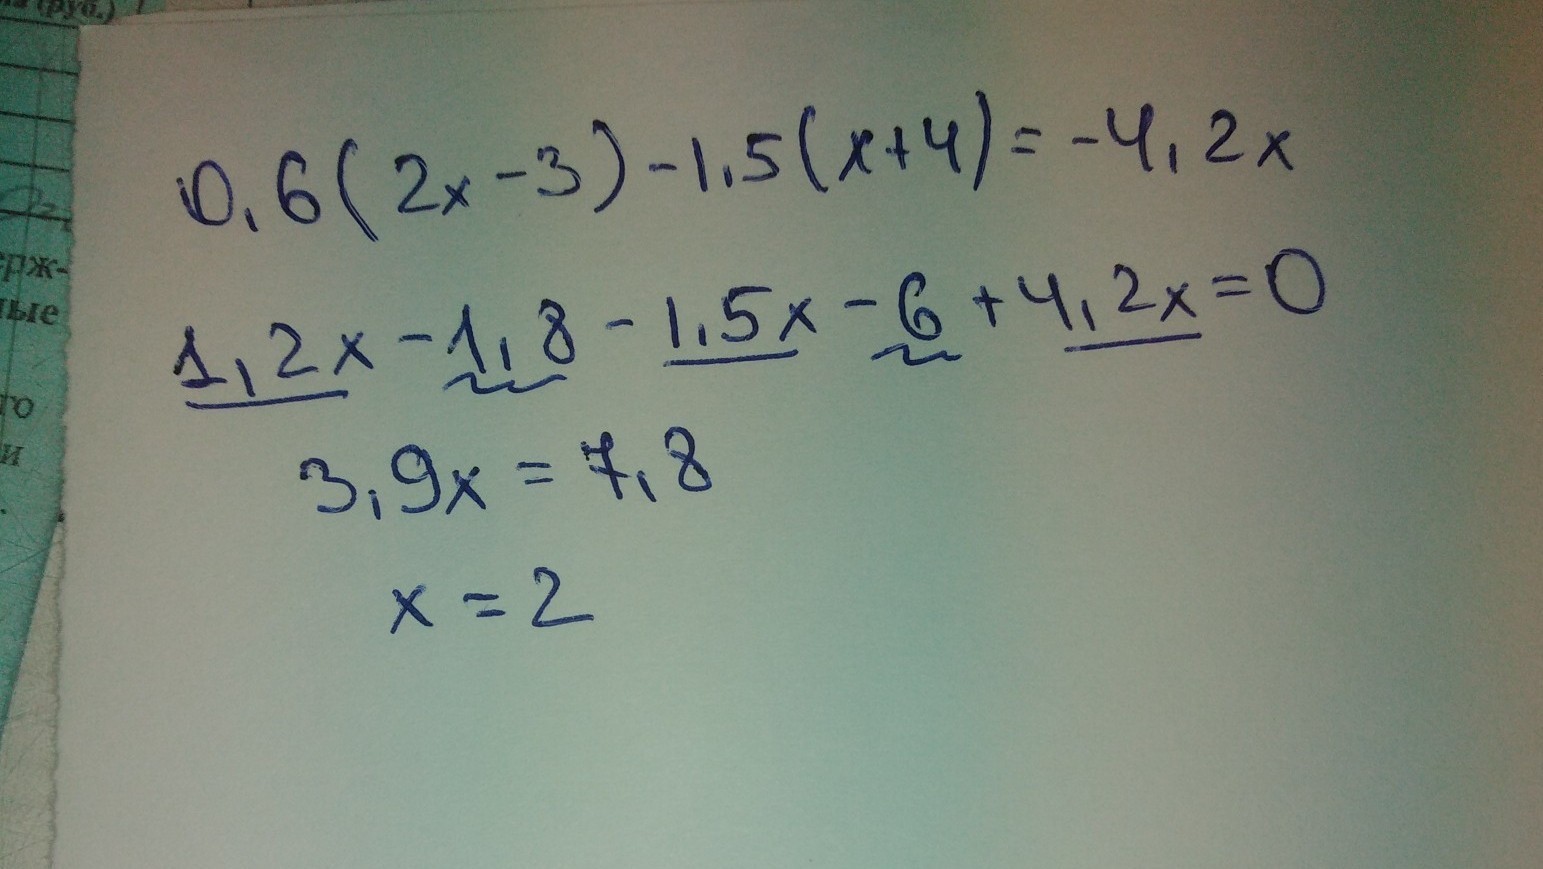 (руб.)
0,6(2x-3)-1,5(x+4)=-4,2x
1,2x-1,8-1,5x-6+4,2x=0
3,9x=7,8
x=2
ерж-
ные
го
и